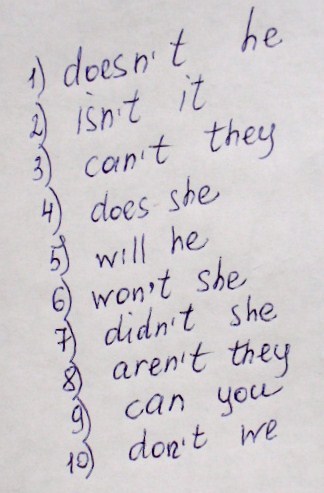 1) doesn't he
2) isn't it
3) can't they
4) does she
5) will he
6) won't she
7) didn't she
8) aren't they
9) can you
10) don't we